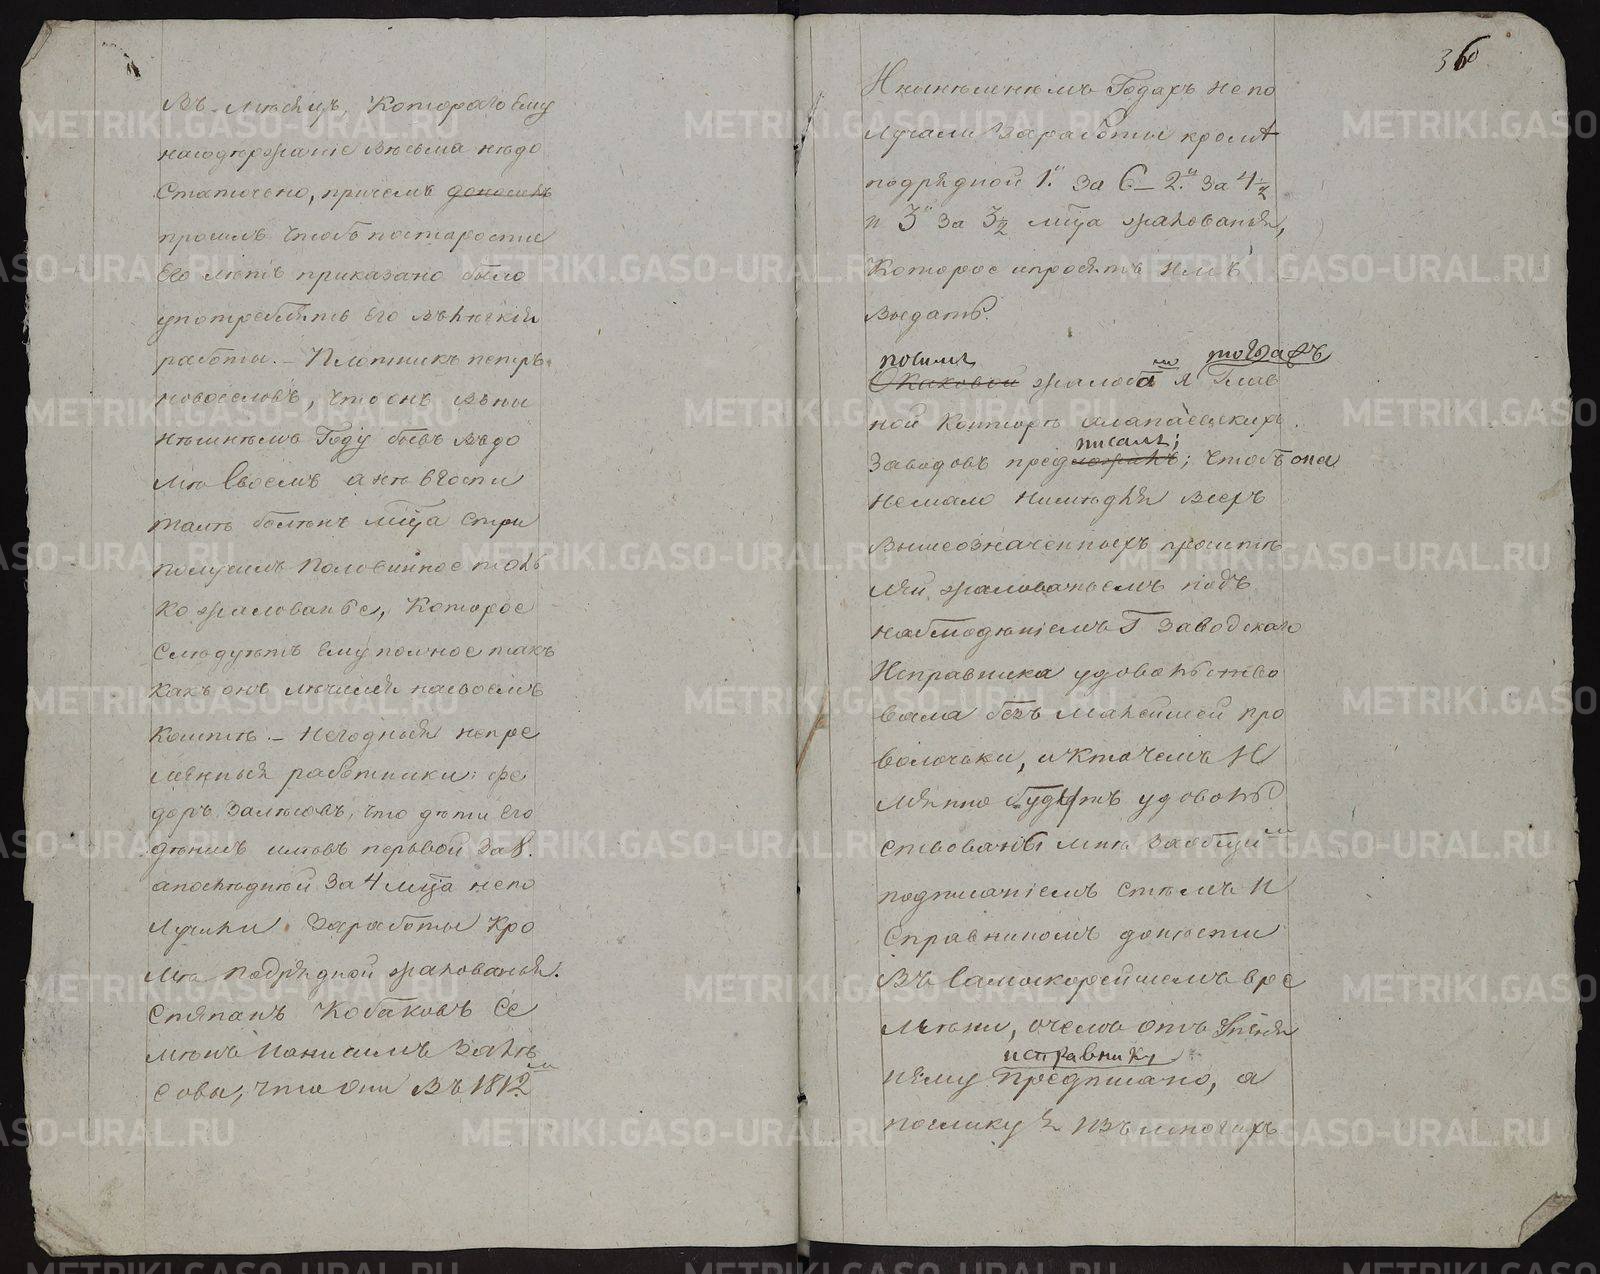 въ месяцъ, котораго ему
насодержаніе весьма недо
статочно, причемъ доноситъ
просилъ чтобъ постарости
его летъ приказано было
употребить его въ легкіи
работы. – Плотникъ петръ
новоселовъ, что онъ въ ны
нешнемъ Году бывъ въ до
ме своемъ а не в гости
тале боленъ мца стри
получилъ половинное толь
ко жалованье, которое
следуетъ ему полное такъ
какъ онъ лечился насвоемъ
коште. – Негодныя непре
менныя работники: Фе
доръ
что дети его
первой за 8.
а последней за 4 мца непо
лучили заработы кро
ме подрядной жалованья.
Степанъ Кобаковъ Се
менъ
совы, что они въ 1812м
36
И нынешнемъ Годахъ непо
лучали заработы кроме
подрядной 1й за 6 – 2й за 4½
и 3й за 3½ мца жалованья,
которое и просятъ имъ
выдать.
посимъ
тогдажъ
О каковой жалобам я Глав
ной Конторе алапаевскихъ
писалъ;
заводовъ предложилъ; чтобъ она
немало немедля всехъ
вышеозначенныхъ просите
лей жалованьемъ подъ
наблюденіемъ Г. Заводскаго
Исправника удовольство
вала безъ малейшей про
волочки, и кточемъ и
мянно будетъ удоволь
ствованъ мне заобщим
подписаніемъ стемъ И
справникомъ донести
въ самоскорейшемъ вре
мени, о чемъ отъ меня
исправнику
и ему предписано, а
поелику я изъ многихъ
METRIKI.GASO-URAL.RU